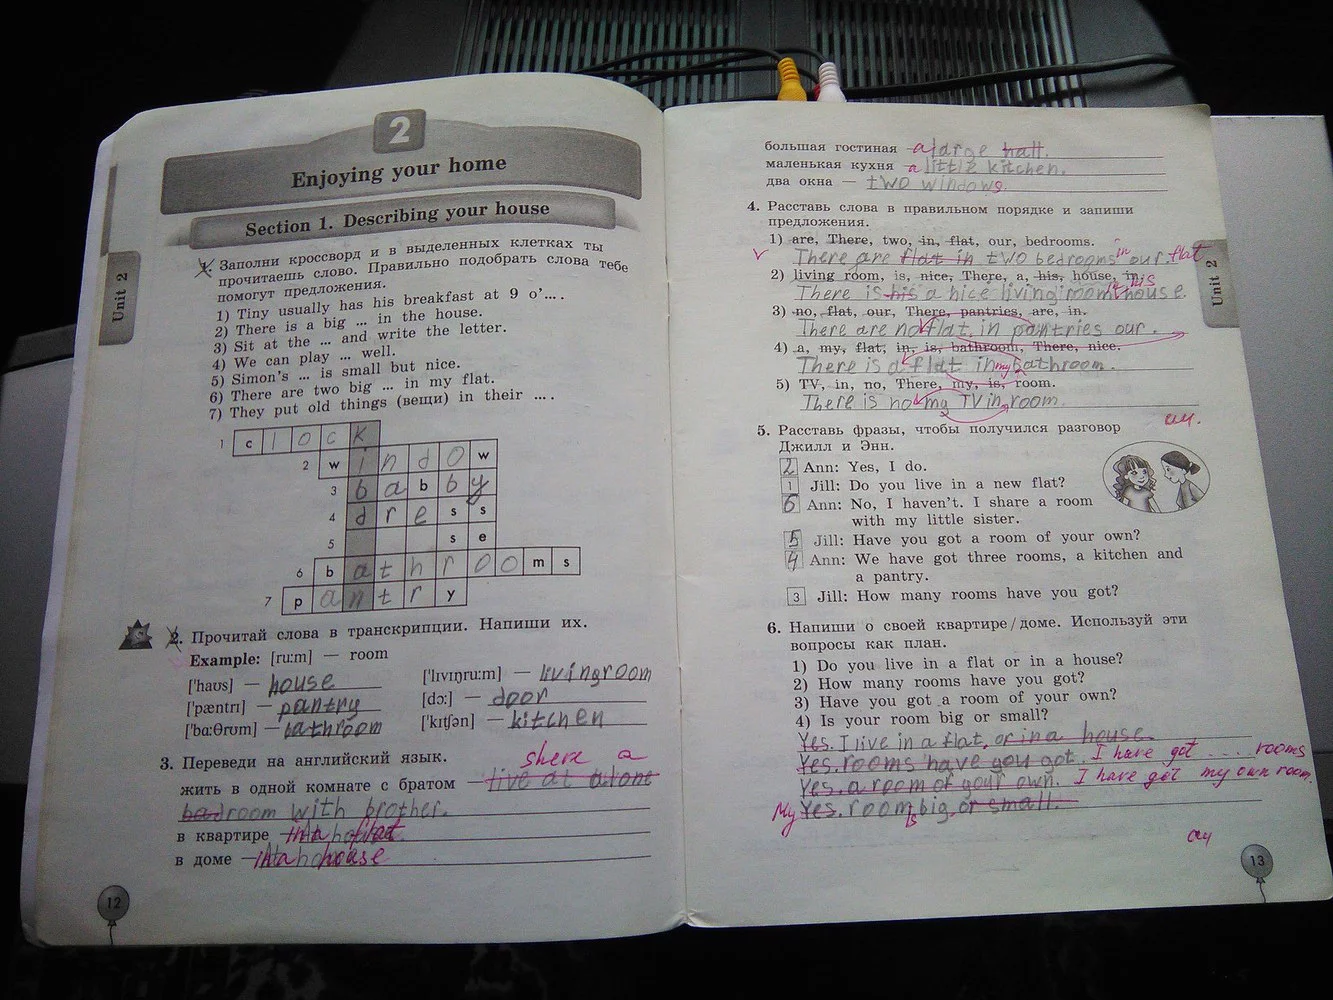 2
Enjoying your home
Section 1. Describing your house
Unit 2
1. Заполни кроссворд и в выделенных клетках ты
прочитаешь слово. Правильно подобрать слова тебе
помогут предложения.
1) Tiny usually has his breakfast at 9 o'... .
2) There is a big ... in the house.
3) Sit at the ... and write the letter.
4) We can play ... well.
5) Simon's ... is small but nice.
6) There are two big ... in my flat.
7) They put old things (вещи) in their ... .
1 c l o c k
2 w i n d o w
3 b a b b y
4 d r e s s
5 s e
6 b a t h r o o m s
7 p a n t r y
2. Прочитай слова в транскрипции. Напиши их.
Example: [ru:m] — room
['haʊs] — house
['pæntrɪ] — pantry
['bɑ:θrʊm] — bathroom
['lɪvɪŋru:m] — livingroom
[dɔ:] — door
['kɪtʃən] — kitchen
3. Переведи на английский язык.
shere a
жить в одной комнате с братом — live at alone
badroom with brother.
в квартире — in a flat
в доме — in a house
12
большая гостиная — a large hall.
маленькая кухня — a little kitchen.
два окна — two windows.
4. Расставь слова в правильном порядке и запиши
предложения.
1) are, There, two, in, flat, our, bedrooms.
There are flat in two bedrooms in our flat
2) living room, is, nice, There, a, his, house, in.
There is his a nice living room in his house.
3) no, flat, our, There, pantries, are, in.
There are no flat in pantries our.
4) a, my, flat, in, is, bathroom, There, nice.
There is a flat in my bathroom.
5) TV, in, no, There, my, is, room.
There is no my TV in room.
Unit 2
5. Расставь фразы, чтобы получился разговор
Джилл и Энн.
2 Ann: Yes, I do.
1 Jill: Do you live in a new flat?
6 Ann: No, I haven't. I share a room
with my little sister.
5 Jill: Have you got a room of your own?
4 Ann: We have got three rooms, a kitchen and
a pantry.
3 Jill: How many rooms have you got?
6. Напиши о своей квартире/доме. Используй эти
вопросы как план.
1) Do you live in a flat or in a house?
2) How many rooms have you got?
3) Have you got a room of your own?
4) Is your room big or small?
Yes. I live in a flat, or in a house.
Yes. rooms have you got. I have got ... rooms
Yes. a room of your own. I have got my own room.
My Yes. room is big, or small.
13